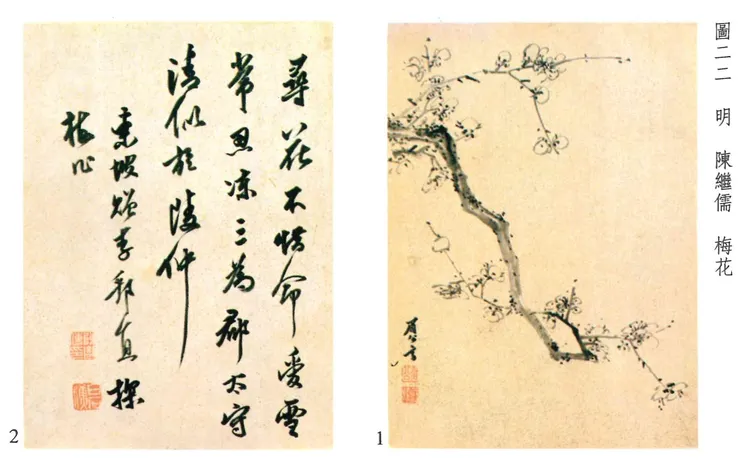 圖二二 明 陳繼儒 梅花
眉公
1
尋花不惜命愛雪
常忍凍三為郡太守
清似於陵仲
東坡贈李邦直探
梅作
2